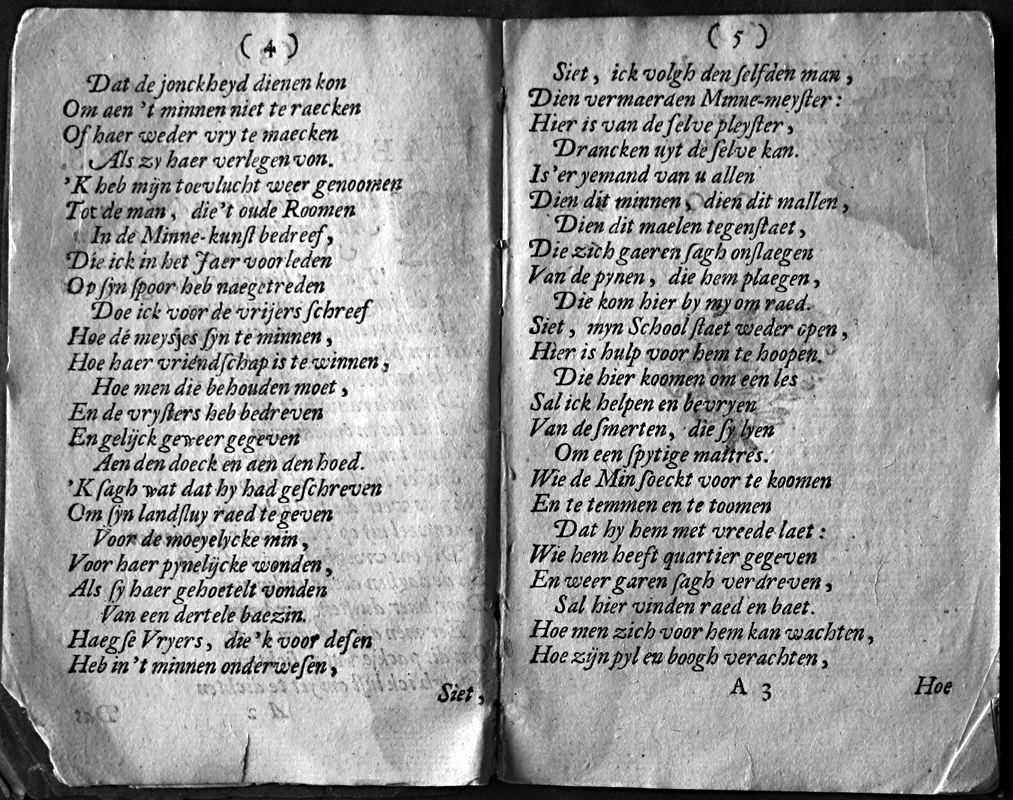 ( 4 )
Dat de jonckheyd dienen kon
Om aen 't minnen niet te raecken
Of haer weder vry te maecken
Als zy haer verlegen von.
'K heb mijn toevlucht weer genoomen
Tot de man, die 't oude Roomen
In de Minne-kunſt bedreef,
Die ick in het Jaer voorleden
Op ſyn ſpoor heb naegetreden
Doe ick voor de vrijers ſchreef
Hoe de meysjes ſyn te minnen,
Hoe haer vriendſchap is te winnen,
Hoe men die behouden moet,
En de vryſters heb bedreven
En gelijck geweer gegeven
Aen den doeck en aen den hoed.
'K ſagh wat dat hy had geſchreven
Om ſyn landſluy raed te geven
Voor de moeyelycke min,
Voor haer pynelijcke wonden,
Als ſy haer gehoetelt vonden
Van een dertele baezin.
Haegſe Vryers, die 'k voor deſen
Heb in 't minnen onderweſen,
Siet,
( 5 )
Siet, ick volgh den ſelfden man,
Dien vermaerden Minne-meyſter:
Hier is van de ſelve pleyſter,
Drancken uyt de ſelve kan.
Is 'er yemand van u allen
Dien dit minnen, dien dit mallen,
Dien dit maelen tegenſtaet,
Die zich gaeren ſagh onſlaegen
Van de pynen, die hem plaegen,
Die kom hier by my om raed.
Siet, myn School ſtaet weder open,
Hier is hulp voor hem te hoopen.
Die hier koomen om een les
Sal ick helpen en bevryen
Van de ſmerten, die ſy lyen
Om een ſpytige maitres.
Wie de Min ſoeckt voor te koomen
En te temmen en te toomen
Dat hy hem met vreede laet:
Wie hem heeft quartier gegeven
En weer garen ſagh verdreven,
Sal hier vinden raed en baet.
Hoe men zich voor hem kan wachten,
Hoe zijn pyl en boogh verachten,
A 3
Hoe